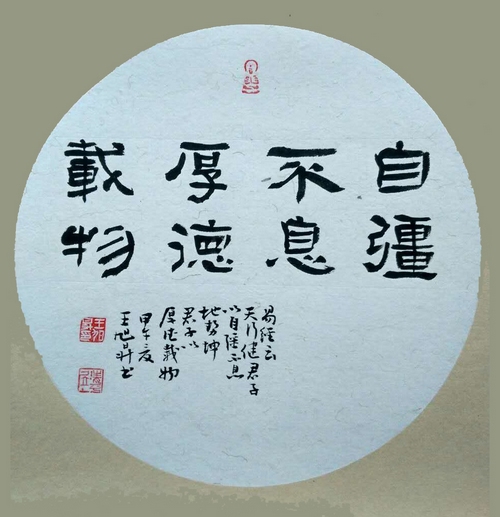 自彊
不息
厚德
載物
易經云
天行健君子
以自强不息
地势坤
君子以
厚德载物
甲午
王旭